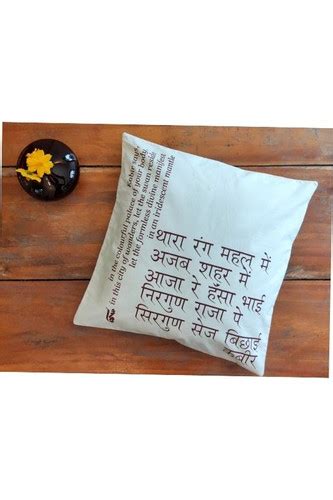 थारा रंग महल में
अजब शहर में
आजा रे हँसा भाई
निरगुण राजा पे
सिरगुण सेज बिछाई
कबीर
in the colourful palace of your body,
in this city of wonders, let the swan reside
let the formless divine manifest
in an iridescent mantle